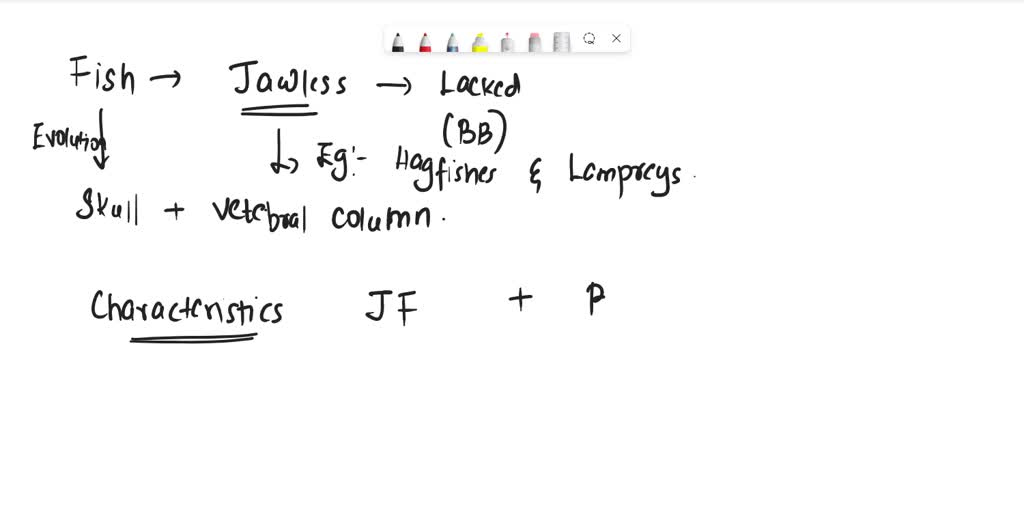 Fish → Jawless → Lacked
(BB)
Evolution
↳ Eg:- Hagfishes & Lampreys.
Skull + vetebral column.
Characteristics JF + P